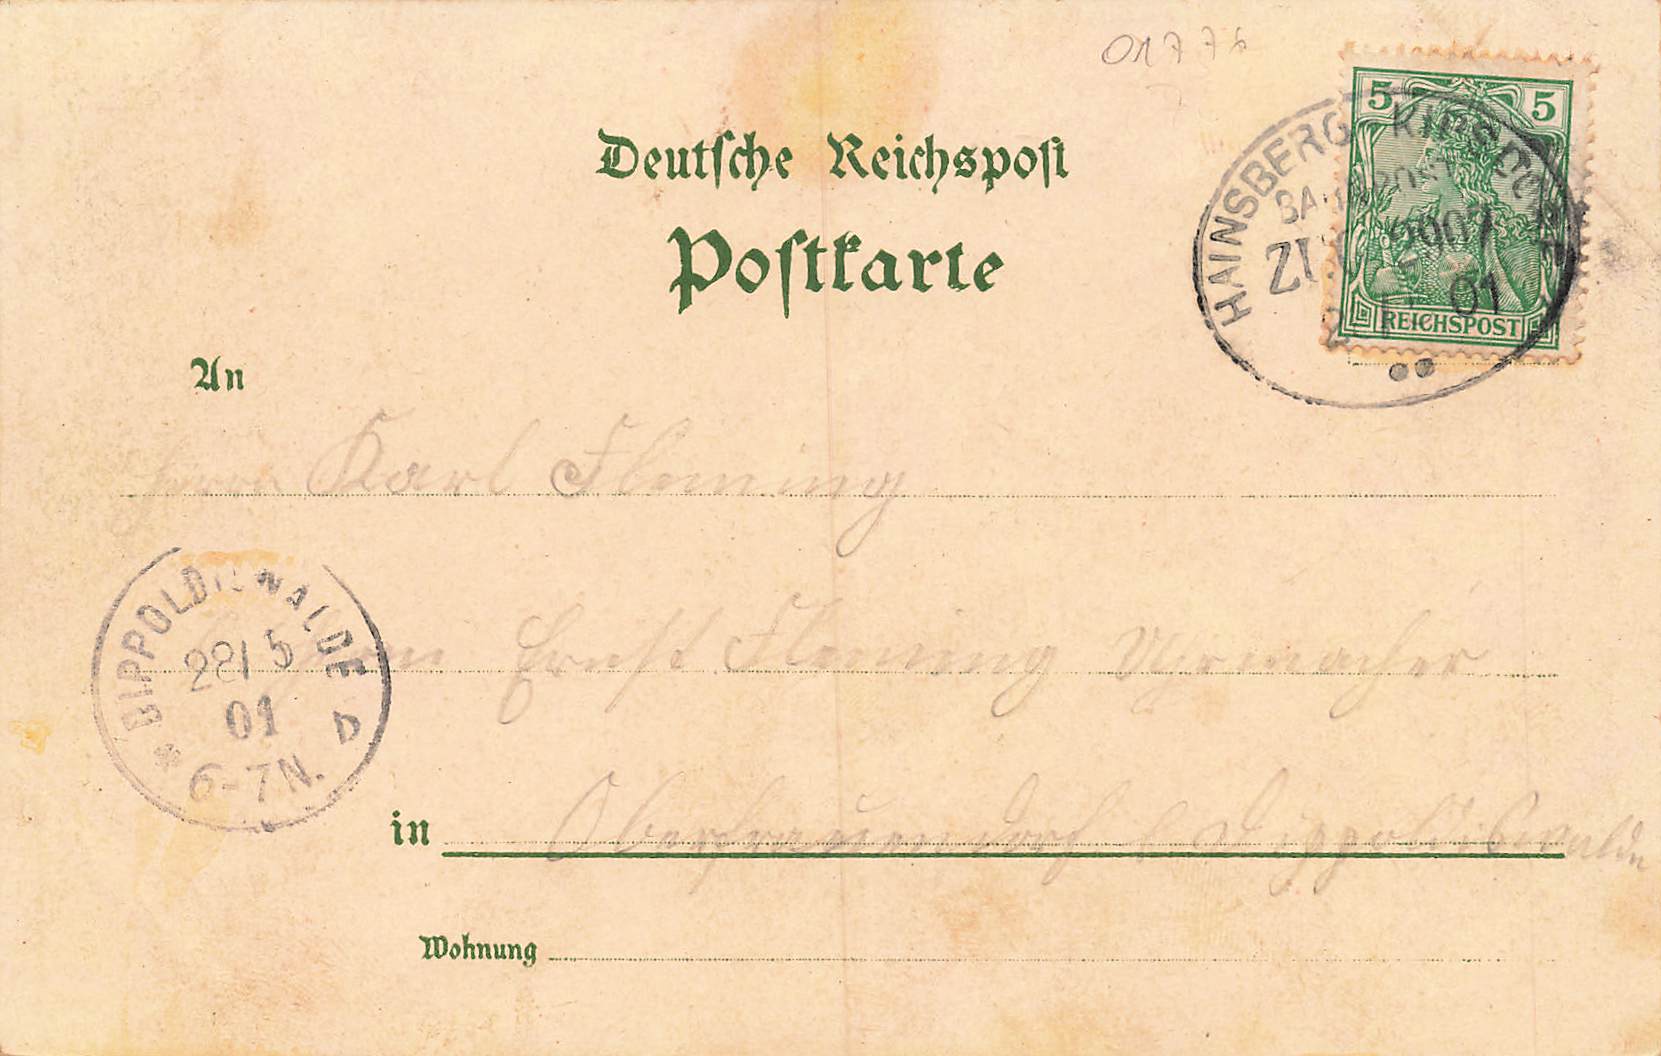 01776
Deutsche Reichspost
Postkarte
5 5
REICHSPOST
HAINSBERG KIPSDORF
BAHNPOST
ZUG 2007
01
An
Herrn Karl Fleming
Ernst Fleming Uhrmacher
in Oberfrauendorf b Dippoldiswalde
DIPPOLDISWALDE
22/5
01
6-7N.
D
Wohnung